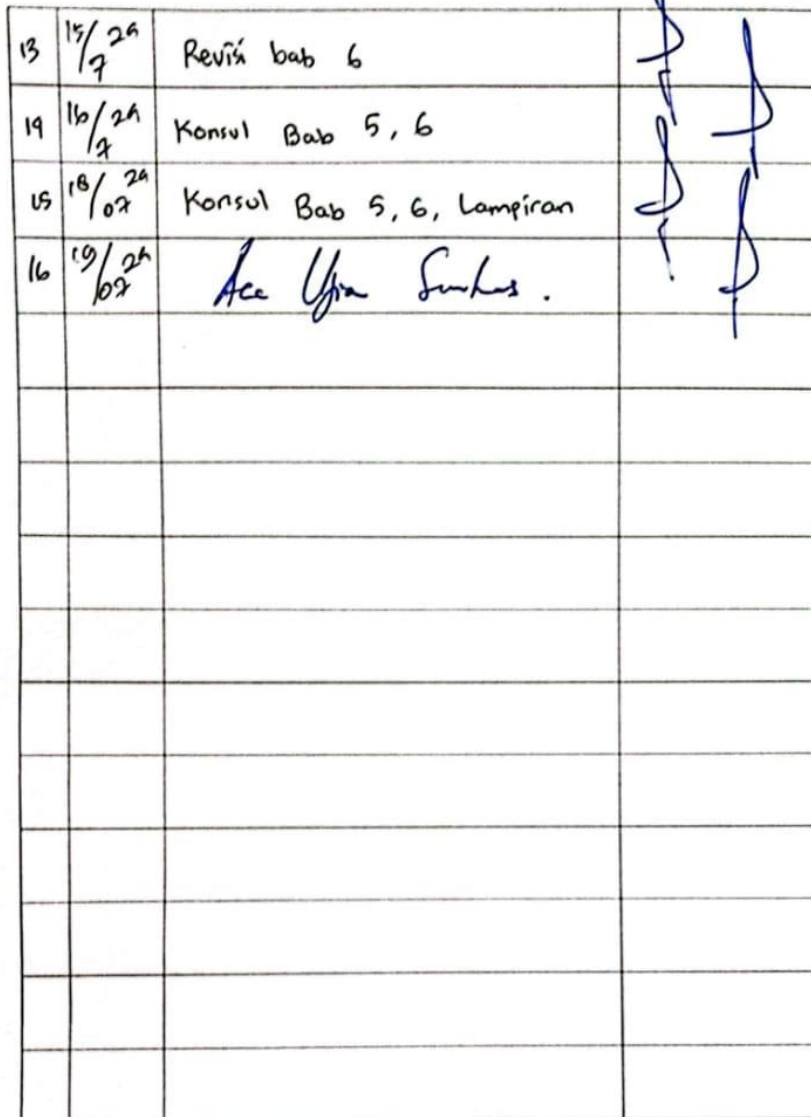 13 15/7 24 Revisi bab 6
14 16/7 24 Konsul Bab 5, 6
15 18/07 24 Konsul Bab 5, 6, Lampiran
16 19/07 24 Acc Ujian Semhas.